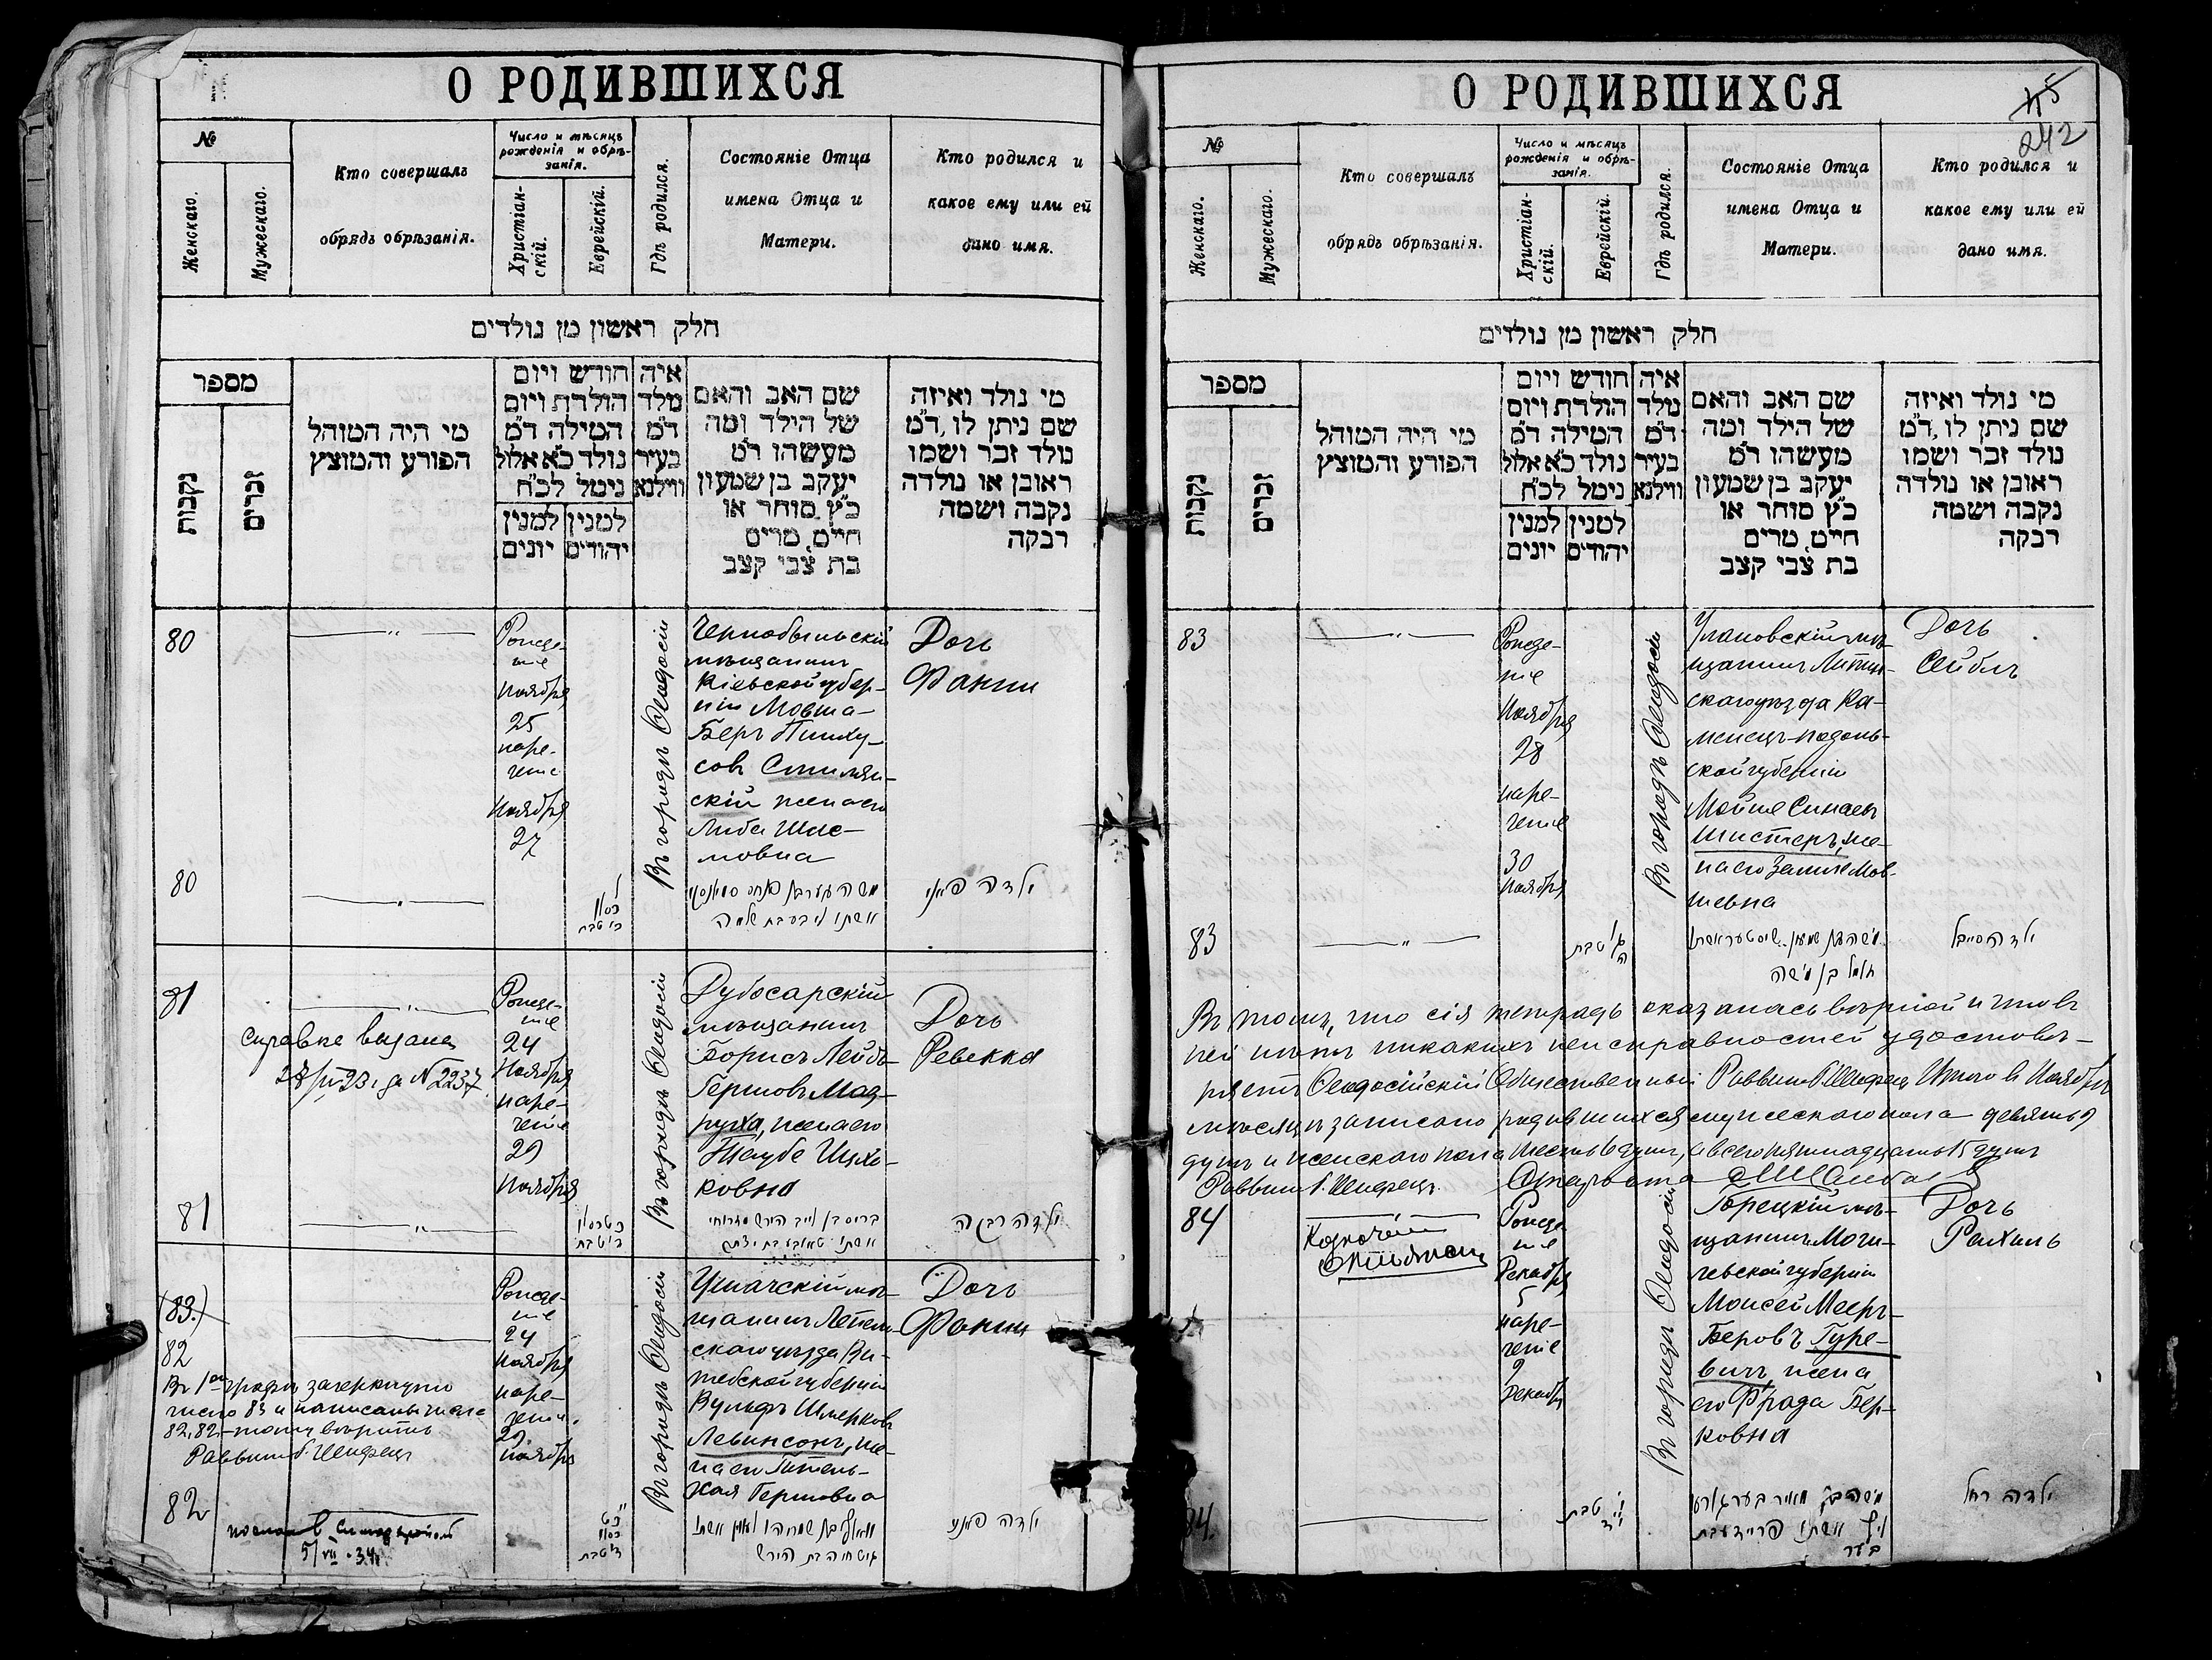 О РОДИВШИХСЯ
№
Женскаго.
Мужескаго.
Кто совершалъ
обрядъ обрѣзанія.
Число и мѣсяцъ
рожденія и обрѣ-
занія.
Христіан-
скій.
Еврейскій.
Гдѣ родился.
Состояніе Отца
имена Отца и
Матери.
Кто родился и
какое ему или ей
дано имя.
חלק ראשון מן נולדים
מספר
נקבות
זכרים
מי היה המוהל
הפורע והמוצץ
חודש ויום
הולדת ויום
המילה ד״מ
נולד כ״א אלול
נימל לכ״ח
למנין
יונים
למנין
יהודים
איה
נולד
ד״מ
בעיר
ווילנא
שם האב והאם
של הילד ומה
מעשהו ד״מ
יעקב בן שמעון
כ״ץ סוחר או
חייט, מרים
בת צבי קצב
מי נולד ואיזה
שם ניתן לו, ד״מ
נולד זכר ושמו
ראובן או נולדה
נקבה ושמה
רבקה
80
Рожде-
ніе
Ноября
25
наре-
ченіе
Ноября
27
Въ городѣ Ѳеодосіи
Чернобыльскій
мѣщанинъ
Кіевской губер-
ніи Мовша-
Беръ Пинху-
совъ Смилян-
скій жена его
Либа Шле-
мовна
Дочь
Фанни
80
ילדה פאני
81
Справка выдана
за № 2237
Рожде-
ніе
24
Ноября
наре-
ченіе
29
Ноября
Въ городѣ Ѳеодосіи
Дубосарскій
мѣщанинъ
Борисъ Лейбъ-
Гершовъ Маз-
руха, жена его
Таубе Ицко-
ковна
Дочь
Ревекка
81
ילדה רבקה
(83.)
82
Въ 1ой графѣ зачеркнуто
число 83 и написаны числа
82, 82 – тому вѣрить
Раввинъ Б. Шифрецъ
Рожде-
ніе
24
Ноября
наре-
ченіе
29
Ноября
Въ городѣ Ѳеодосіи
Ушачскій мѣ-
щанинъ Лепель-
скаго уѣзда Ви-
тебской губерніи
Вульфъ Шмерковъ
Левинсонъ, же-
на его
Гершовна
Дочь
Фанни
82
5/VII 34
ילדה פאני
О РОДИВШИХСЯ
45
242
№
Женскаго.
Мужескаго.
Кто совершалъ
обрядъ обрѣзанія.
Число и мѣсяцъ
рожденія и обрѣ-
занія.
Христіан-
скій.
Еврейскій.
Гдѣ родился.
Состояніе Отца
имена Отца и
Матери.
Кто родился и
какое ему или ей
дано имя.
חלק ראשון מן נולדים
מספר
נקבות
זכרים
מי היה המוהל
הפורע והמוצץ
חודש ויום
הולדת ויום
המילה ד״מ
נולד כ״א אלול
נימל לכ״ח
למנין
יונים
למנין
יהודים
איה
נולד
ד״מ
בעיר
ווילנא
שם האב והאם
של הילד ומה
מעשהו ד״מ
יעקב בן שמעון
כ״ץ סוחר או
חייט, מרים
בת צבי קצב
מי נולד ואיזה
שם ניתן לו, ד״מ
נולד זכר ושמו
ראובן או נולדה
נקבה ושמה
רבקה
83
Рожде-
ніе
Ноября
28
наре-
ченіе
30
Ноября
Въ городѣ Ѳеодосіи
Улановскій мѣ-
щанинъ Литин-
скаго уѣзда Ка-
менецъ-подоль-
ской губерніи
Мойше Синаевъ
Шистеръ, же-
на его Мов-
шевна
Дочь
Сейблъ
83
ילדה סייבל
Въ томъ, что сія тетрадь оказалась вѣрной и что въ
ней нѣтъ никакихъ неисправностей удостовѣ-
ряетъ Ѳеодосійскій Общественный Раввинъ Б. Шифрецъ Итого въ Ноябрѣ
мѣсяцѣ записано родившихся мужескаго пола девять 9
душъ и женскаго пола шесть 6 душъ, а всего пятнадцать 15 душъ
Раввинъ Б. Шифрецъ. Староста
84
Рожде-
ніе
Декабря
5
наре-
ченіе
9
Декабря
Въ городѣ Ѳеодосіи
Горецкій мѣ-
щанинъ Моги-
левской губерніи
Моисей Мееръ-
Беровъ Гуре-
вичъ, жена
его Фрада Бер-
ковна
Дочь
Рахиль
84.
ילדה רחל